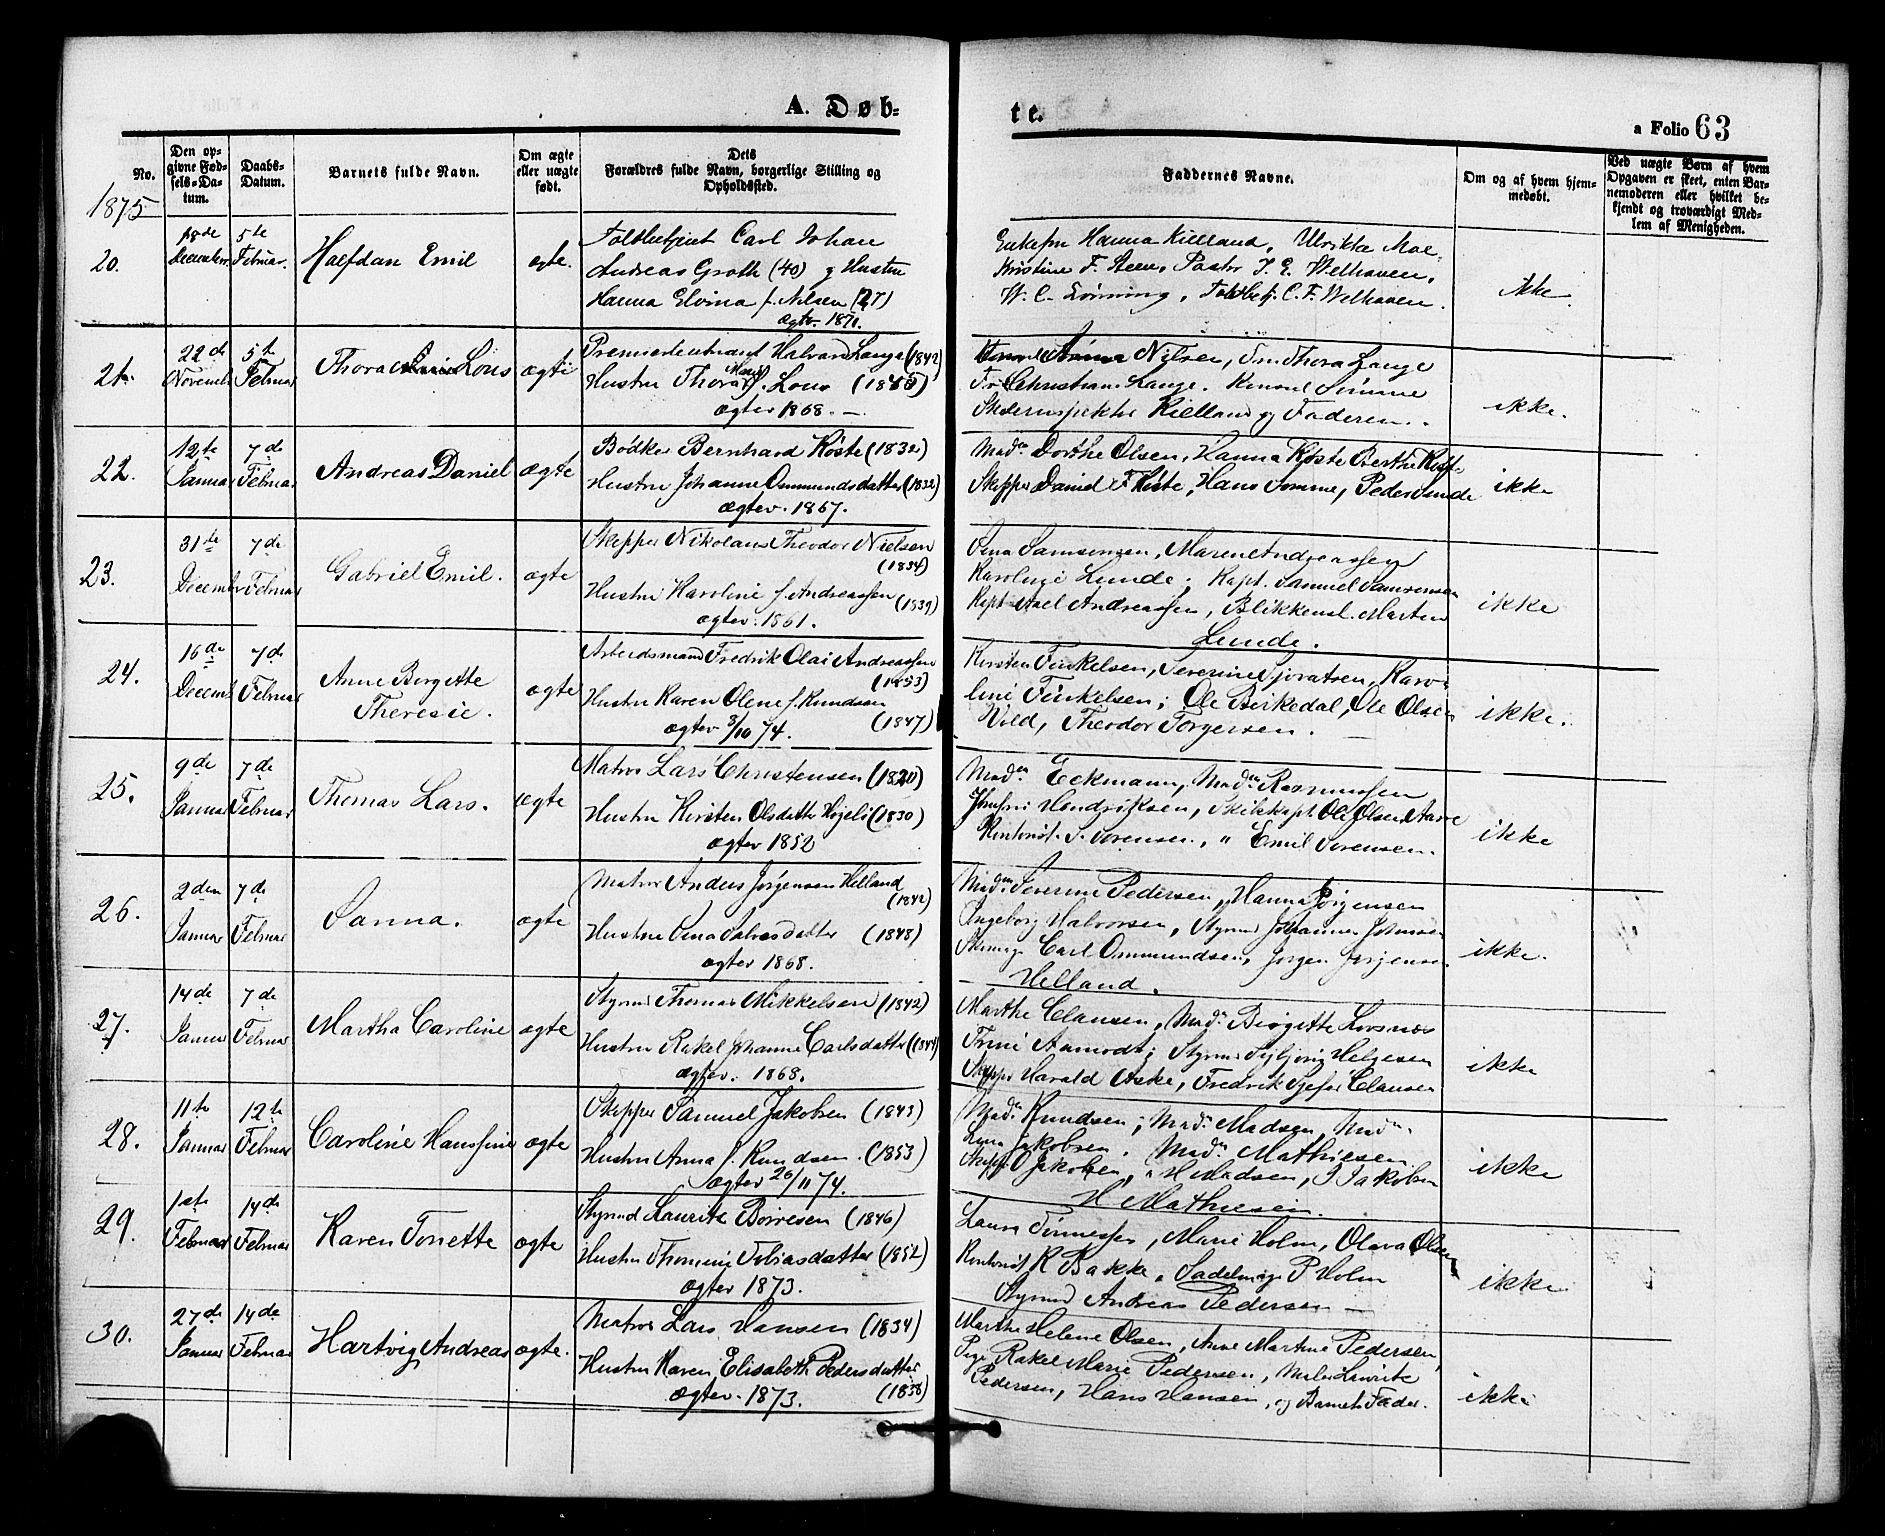 A. Døb-
te.
a Folio 63
No.
Den op-
givne Fød-
sels-Da-
tum.
Daabs-
Datum.
Barnets fulde Navn.
Om ægte
eller uægte
født.
Dets
Forældres fulde Navn, borgerlige Stilling og
Opholdssted.
Faddernes Navne.
Om og af hvem hjem-
medøbt.
Ved uægte Børn af hvem
Opgaven er skeet, enten Bar-
nemoderen eller hvilket be-
kjendt og troværdigt Med-
lem af Menigheden.
1875
20.
18de
December
5te
Februar.
Halfdan Emil
ægte.
Toldbetjent Carl Johan
Andreas Groth (40) og Hustru
Hanna Elvina f. Nilsen (27)
ægtev. 1871.
Enkefru Hanna Kielland, Ulrikke Moe,
Kristine F. Steen, Pastor J. E. Welhaven,
W. C. Lönning, Toldbetj. C. F. Welhaven.
ikke.
21.
22de
Novemb
5te
Februar
Thora Lous
ægte
Premierlieutnant Halvard Lange (1842)
Hustru Thora Marie f. Lous (1845)
ægtev 1868. —
Nilsen, Frk Thora Lange
Fr. Christiane Lange. Konsul Sömme
Skoleinspektör Kielland og Faderen.
ikke.
22.
12te
Januar
7de
Februar
Andreas Daniel
ægte
Bödker Bernhard Köste (1832)
Hustru Johanne Ommundsdatter (1832)
ægtev. 1867.
Madn Dorthe Olsen, Hanna Köste Berthe
Skipper Daniel F Köste, Hans Somme, Peder Sunde
ikke
23.
31te
December
7de
Februar
Gabriel Emil.
ægte
Skipper Nikolaus Theodor Nielsen
(1834)
Hustru Karoline f. Andreassen
(1839)
ægtev. 1861.
Lina Samsonsen, Maren Andreassen
Karoline Lunde; Kapt. Samuel Samsonsen
Kapt Axel Andreassen, Blikkensl. Marten
Lunde.
ikke
24.
16de
Decemb
7de
Februar
Anne Bergitte
Theresie.
ægte
Arbeidsmand Fredrik Olai Andreassen
(1853)
Hustru Karen Olene f. Knudsen
(1847)
ægtev 8/10 74.
Kirsten Tinkelsen, Severine Karo-
line Tinkelsen; Ole Birkedal, Ole Olsen
Vold, Theodor Torgersen. —
ikke.
25.
9de
Januar
7de
Februar
Thomas Lars.
ægte
Matros Lars Christensen
Hustru Kirsten Olsdatter (1830)
ægtev 1852
Madn. Eckmann, Madn Rasmussen
Jomfru Hendriksen, Skibskapt. Ole Olsen
Kontorist S. Sörensen, " Emil Sörensen.
ikke
26.
2den
Januar
7de
Februar
Sanna.
ægte
Matros Anders Jörgensen Helland
(1842)
Hustru Lina Salvesdatter (1848)
ægtev 1868.
Madn Severine Pedersen, Hanna Jörgensen
Ingeborg Halvorsen, Styrmd Johannes Johnsen
Carl Ommundsen, Jörgen Jörgensen
Helland.
ikke.
27.
14de
Januar
7de
Februar
Martha Caroline
ægte
Styrmd Thomas Mikkelsen (1842)
Hustru Rakel Johanne Carlsdatter (1844)
ægtev. 1868.
Marthe Clausen, Madn Birgitte
Trine Aamodt; Styrmd Helgesen
Skipper Harald Aske, Fredrik Clausen
ikke
28.
11te
Januar
12te
Februar
Caroline Hansine
ægte
Skipper Samuel Jakobsen (1843)
Hustru Anna f. Knudsen. (1853)
ægtev 26/11 74.
Madn. Knudsen; Madn. Madsen, Madn.
Lina Jakobsen. Madn Mathiesen.
Skipp O Jakobsen, " H Madsen, J Jakobsen
H Mathiesen.
ikke
29.
1ste
Februar
14de
Februar
Karen Tonette
ægte
Styrmd Laurits Börresen (1846)
Hustru Thomine Tobiasdatter (1852)
ægtev 1873.
Laura Tönnessen, Marie Holm, Olava Olsen
Kontorist R Bakke, Sadelmager P Holm
Styrmd Andreas Pedersen —
ikke
30.
27de
Januar
14de
Februar
Hartvig Andreas
ægte.
Matros Lars Hansen (1834)
Hustru Karen Elisabeth Pedersdatter
ægtev. 1873. (1838)
Marthe Helene Olsen, Anne Martine Pedersen,
Pige Rakel Marie Pedersen, Maler Lauritz
Pedersen, Hans Hansen, og Barnets Fader.
ikke